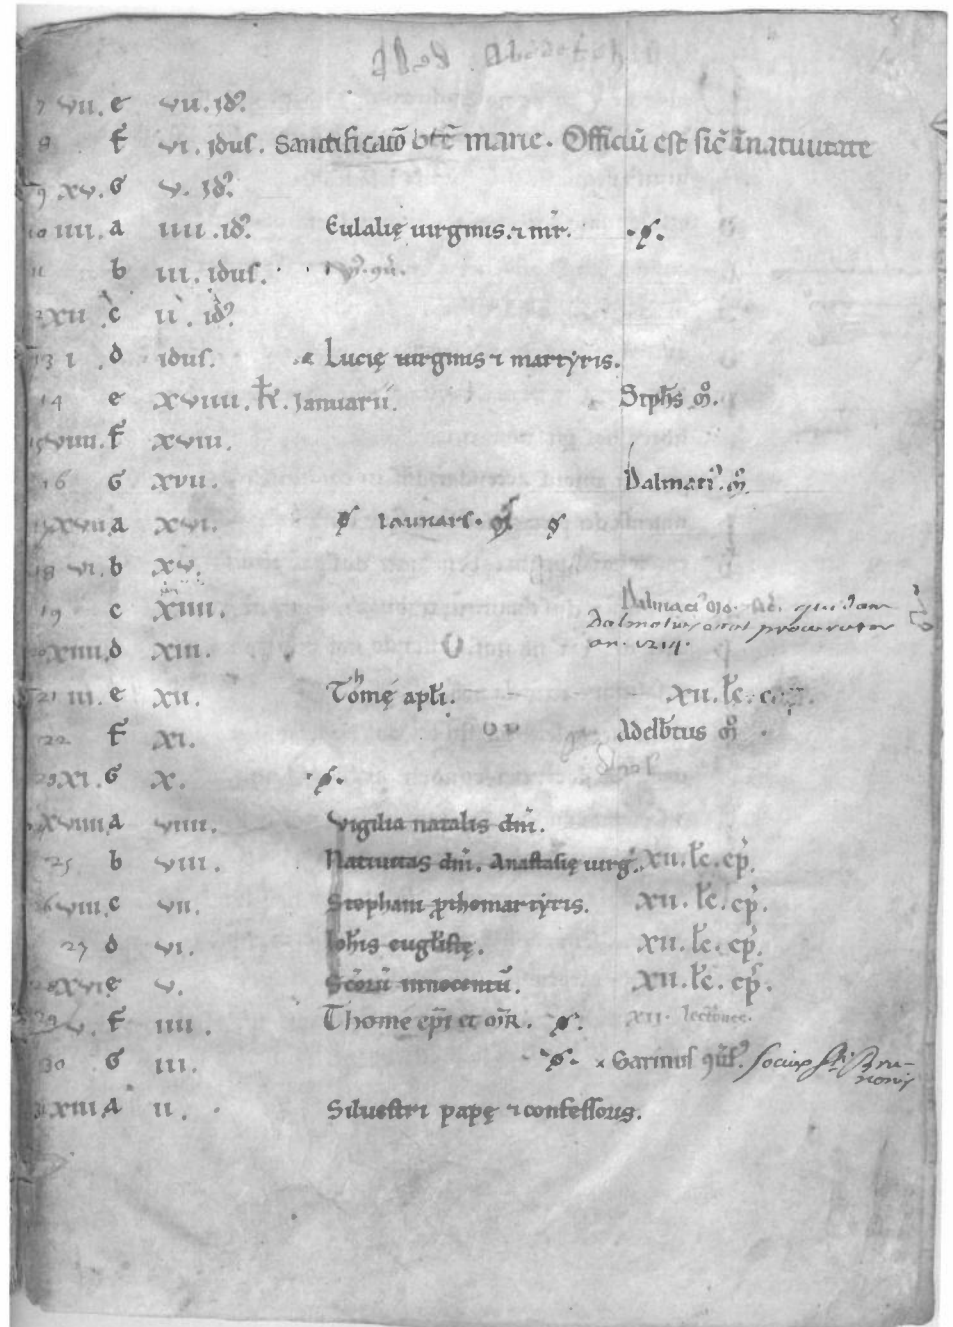 7 vii. e vii. id᾽.
8 f vi. idus. Sanctificatō btē marie. Officiū est sic̄ in natiuitate
9 xv. G v. id᾽.
10 iiii. a iiii. id᾽. Eulalię uirginis. ⁊ mr̄. .s.
11 b iii. idus.
xii c ii. id᾽.
13 i. d idus. Lucię uirginis ⁊ martyris.
14 e xviiii. kl̄. Ianuarii. Stph̄s mo᾽.
15 viiii. f xviii.
16 G xvii. Dalmati᾽. mo᾽.
xvii a xvi.
18 vi. b xv.
19 c xiiii. Dalmaci᾽ mo᾽. quidam
Dalmatius erat procurator
an. 1214.
xiiii. d xiii.
21 iii. e xii. Thomę apl̄i. xii. lc̄.
22 f xi. Adelb̄tus mo᾽
23 xi. G x. .s.
xviiii. a viiii. Vigilia natalis dn̄i.
25 b viii. Natiuitas dn̄i. Anastasię uirg᾽. xii. lc̄. cp̄.
26 viii. c vii. Stephani p̄thomartyris. xii. lc̄. cp̄.
27 d vi. Ioh̄is eugl̄istę. xii. lc̄. cp̄.
28 xvi e v. Sc̄orū innocentū. xii. lc̄. cp̄.
29 v. f iiii. Thome ep̄i et mr̄. .s. xii. lectiones.
30 G iii. .s. × Garinus 9us᾽. socius sti Bru-
nonis
31 xiii A ii. Siluestri papę ⁊ confessoris.